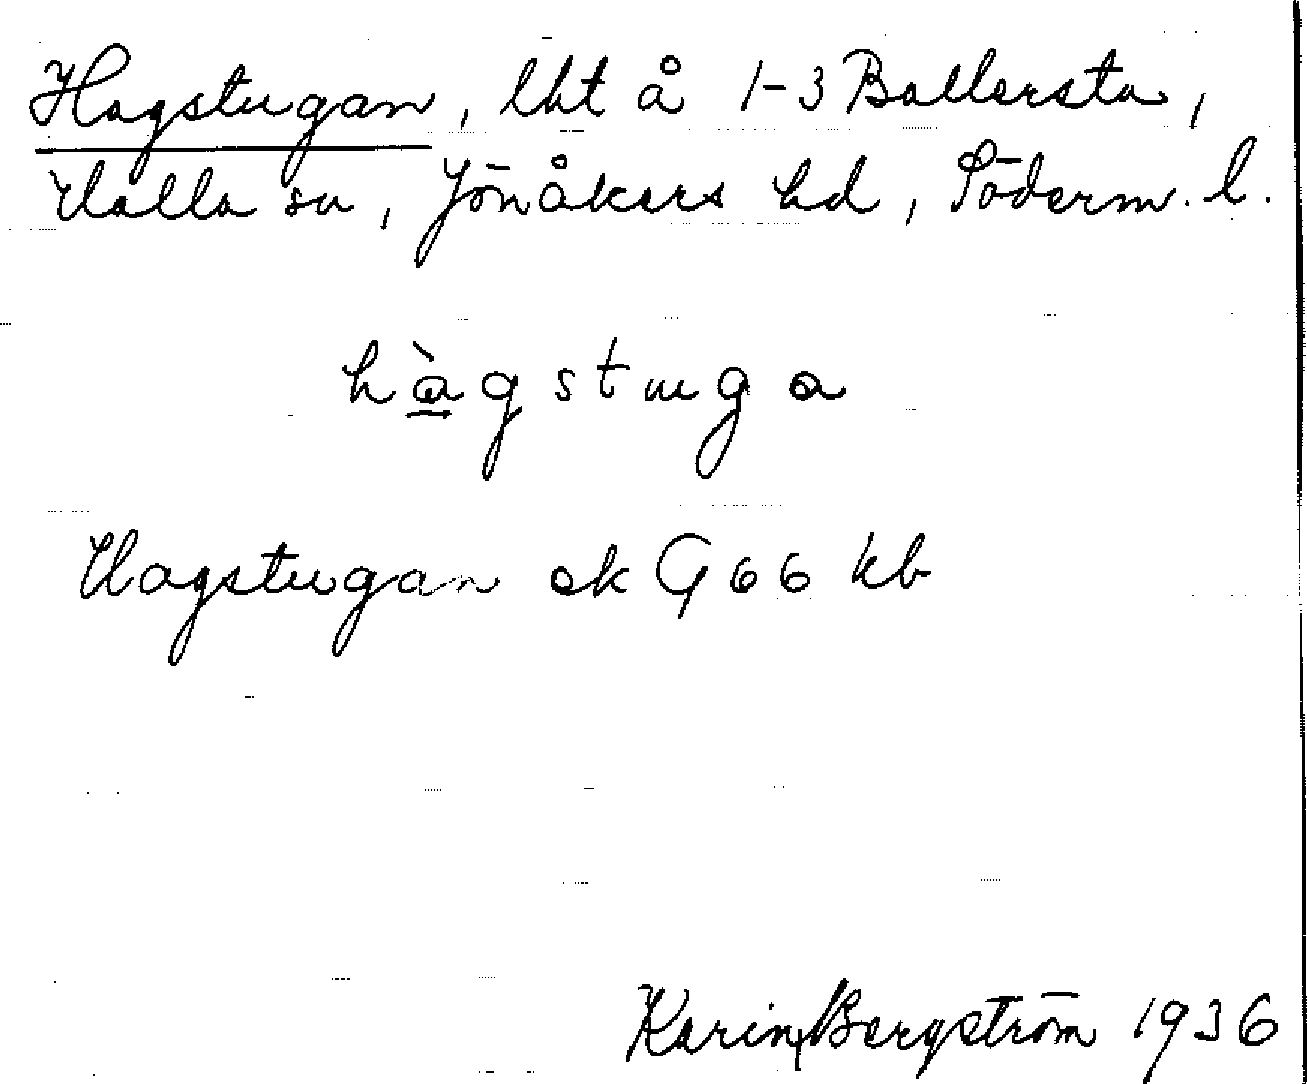 Hagstugan, lht å 1-3 Ballersta,
Halla sn, Jönåkers hd, Söderm. l.
hàgstuga
Hagstugan ek G 66 kb
Karin Bergström 1936